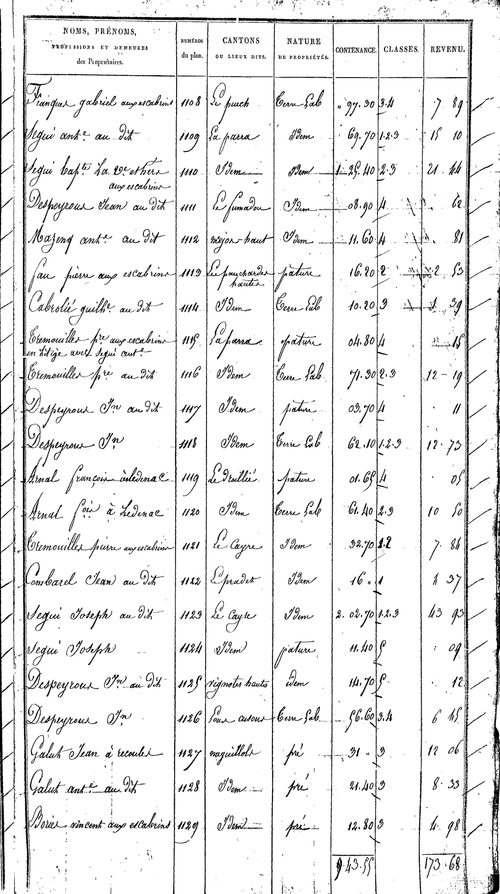 NOMS, PRÉNOMS, PROFESSIONS ET DEMEURES des Propriétaires. NUMÉROS du plan. CANTONS OU LIEUX DITS. NATURE DE PROPRIÉTÉS. CONTENANCE. CLASSES. REVENU.
gabriel aux escabrins 1108 Le puech Terre Lab 97.30 3.4 7 89
Segui ant.e au dit 1109 La parra Idem 69.70 1.2.3 15 10
Segui bap.te La V.ve et hers 1110 Idem Idem 1.25.40 2.3 21 44
aux escabrins
Despeyrous Jean au dit 1111 Le fumadou Idem 08.90 4 62
Mazenq ant.e au dit 1112 mejos-haut Idem 11.60 4 81
pierre aux escabrins 1113 pature 16.20 2 2 53
hautes
Cabrolié guilh.e au dit 1114 Idem Terre Lab 10.20 3 1 39
Tremouilles p.re aux escabrins 1115 La parra pature 04.80 4 15
en litige avec Segui ant.e
Tremouilles p.re au dit 1116 Idem Terre Lab 71.30 2.3 12 19
Despeyrous J.n au dit 1117 Idem pature 03.70 4 11
Despeyrous J.n 1118 Idem Terre Lab 62.10 1.2.3 12.73
Arnal françois à ledenac 1119 pature 01.65 4 05
Arnal f.ois à Ledenac 1120 Idem Terre Lab 61.40 2.3 10 50
Tremouilles pierre aux escabrins 1121 Le Cayre Idem 32.70 1.2 7.84
Combarel Jean au dit 1122 Le pradet Idem 16 " 1 4 37
Segui Joseph au dit 1123 Le Cayre Idem 2.02.70 1.2.3 43 93
Segui Joseph 1124 Idem pature 11.40 5 09
Despeyrous J.n au dit 1125 vignotes hautes idem 14.70 5 12
Despeyrous J.n 1126 Terre Lab 56.60 3.4 6 45
Galut Jean à recoules 1127 naguillols pré 31 " 3 12 06
Galut ant.e au dit 1128 Idem pré 21.40 3 8.33
Bories vincent aux escabrins 1129 Idem pré 12.80 3 4.98
9.43.55 173.68